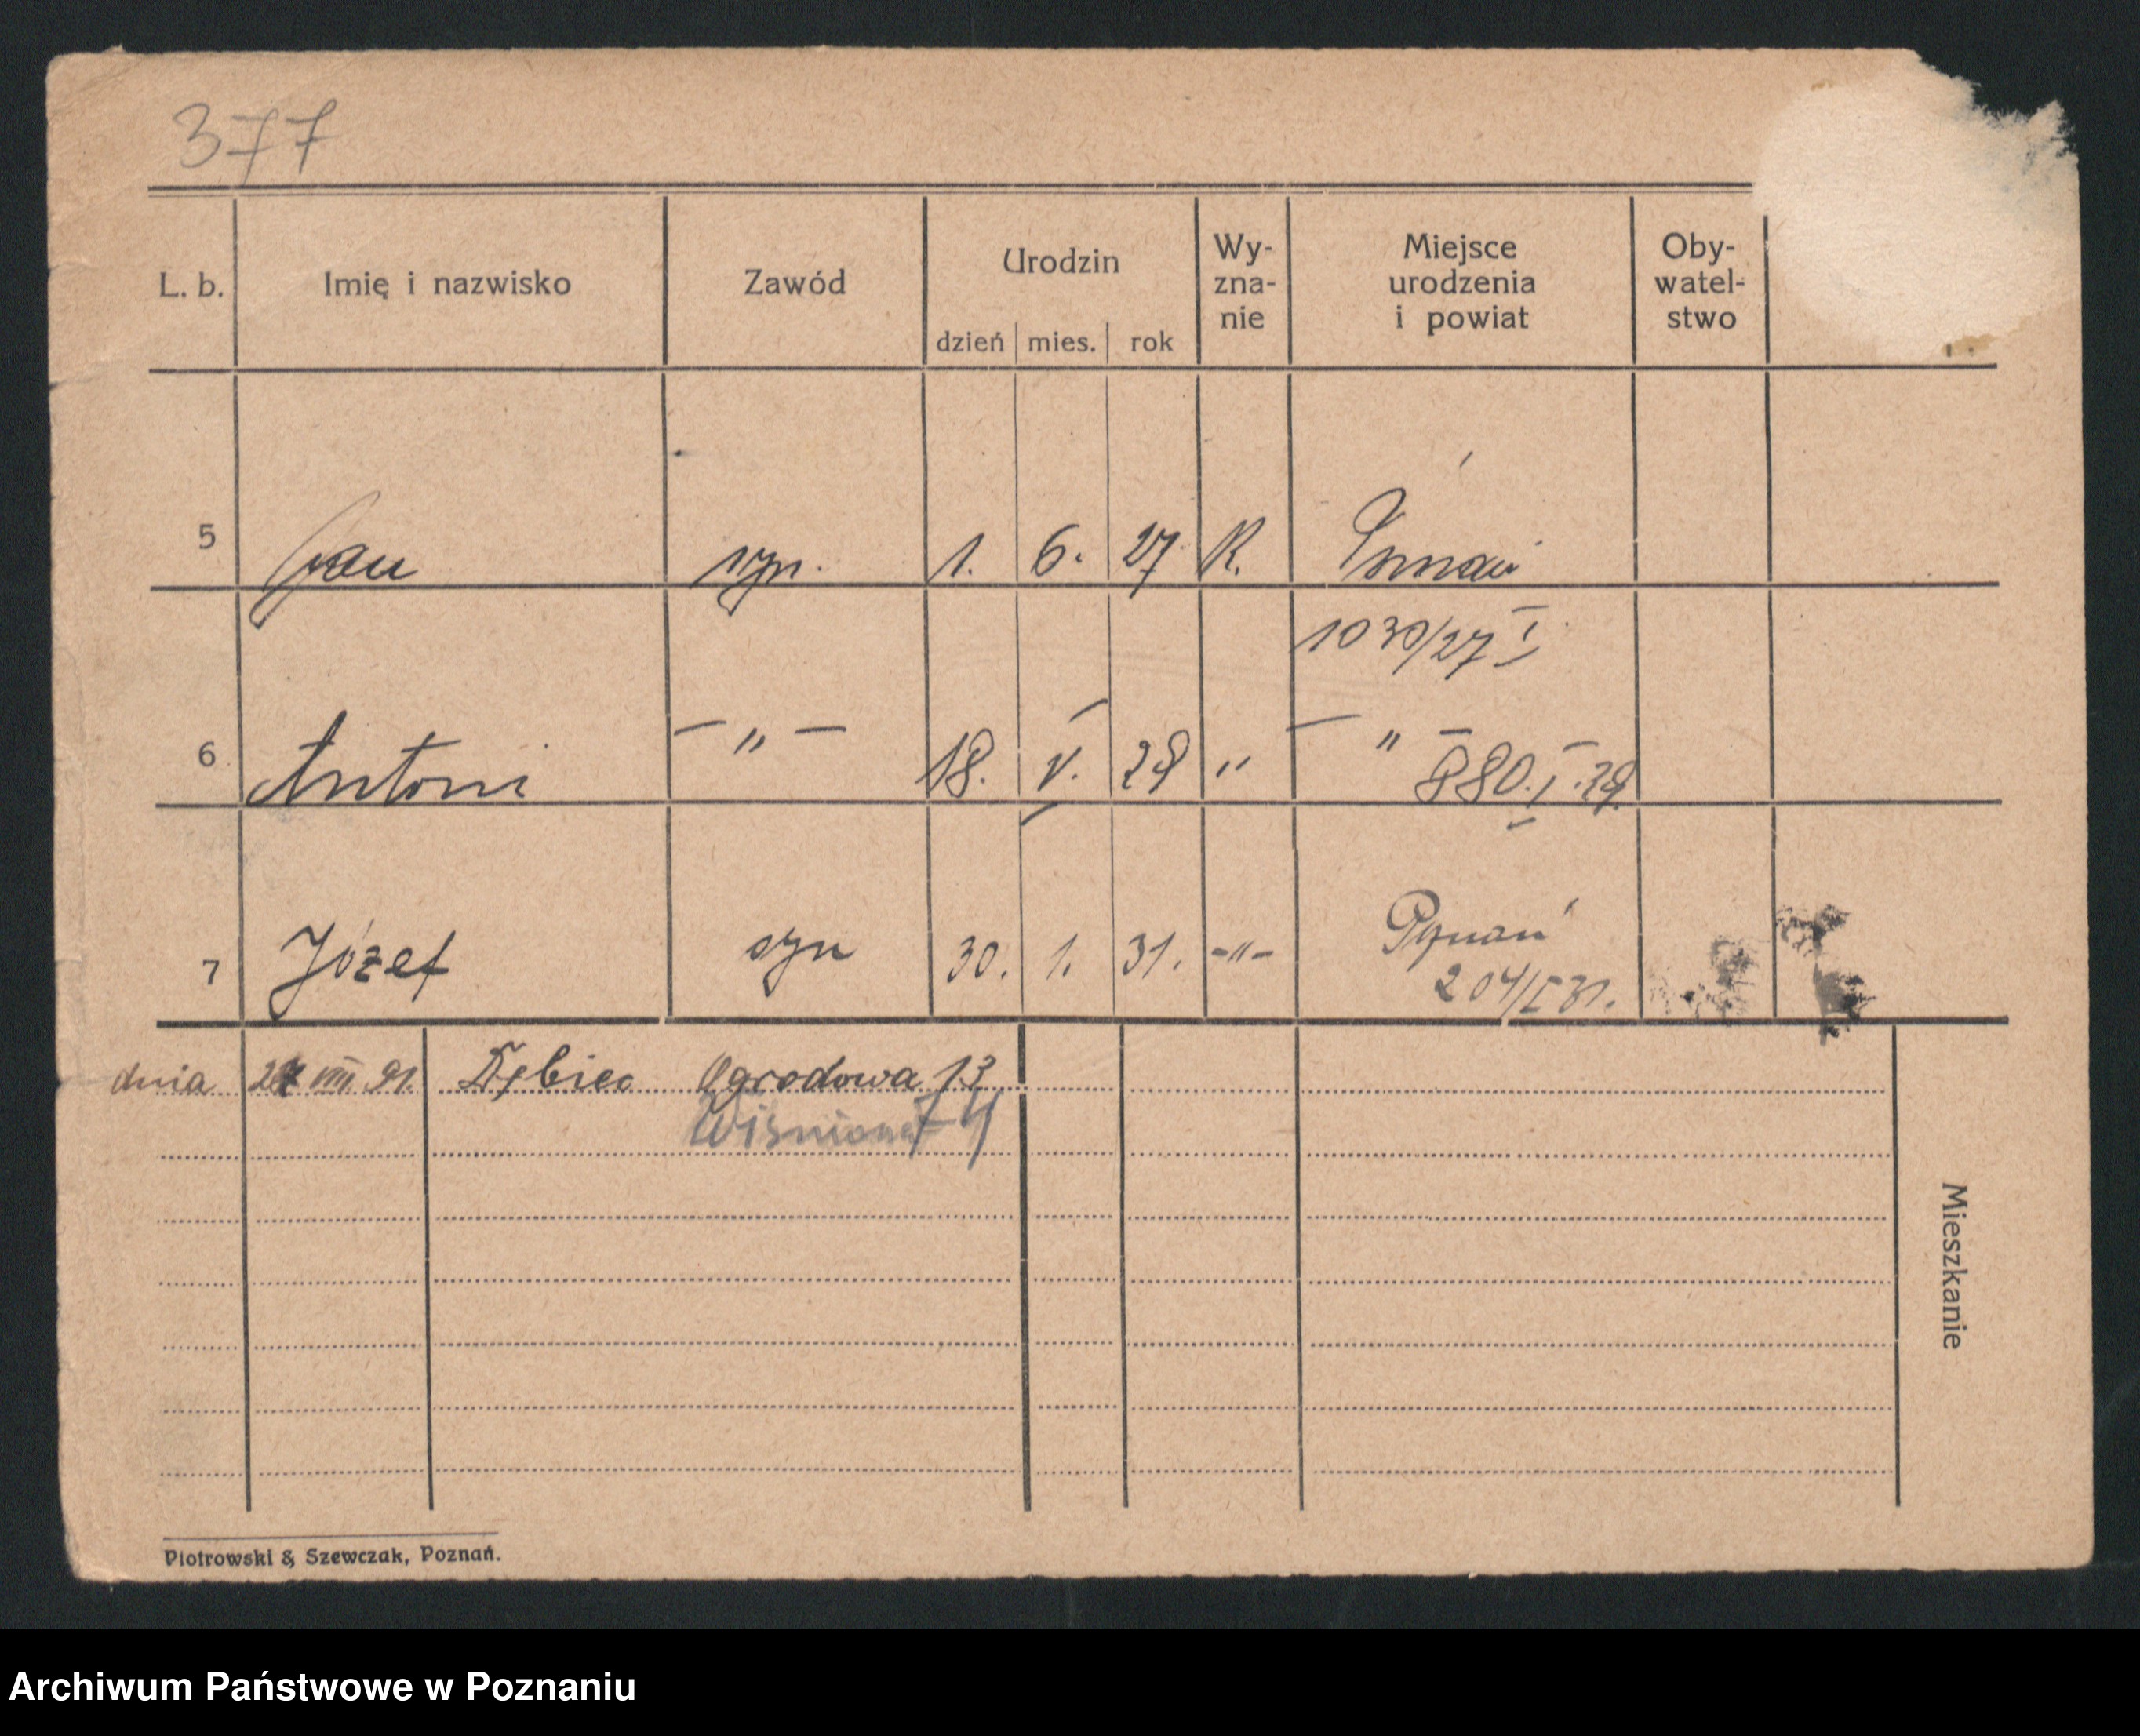 377
L. b. Imię i nazwisko Zawód Urodzin dzień mies. rok Wy-zna-nie Miejsce urodzenia i powiat Oby-watel-stwo
5 Jan syn. 1. 6. 27. R. Poznań
1030/27 I
6 Antoni – " – 18. V. 29 " – " – 880. I. 29.
7 Józef syn 30. 1. 31. -"- Poznań
204/I 31.
dnia VIII 31. Dębiec Ogrodowa 13
Wiśniowa 74
Mieszkanie
Piotrowski & Szewczak, Poznań.
Archiwum Państwowe w Poznaniu